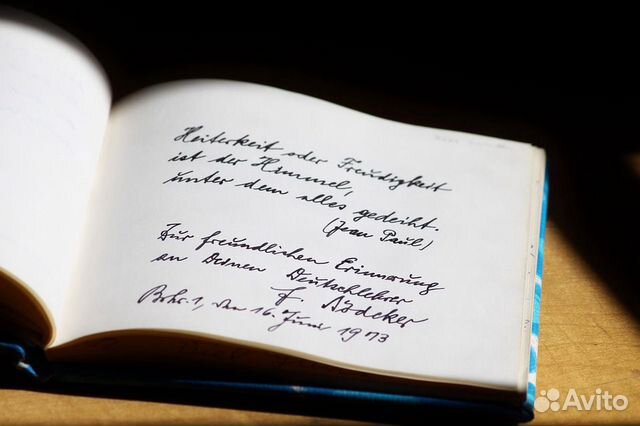 Heiterkeit oder Freudigkeit
ist der Himmel,
unter dem alles gedeiht.
(Jean Paul)
Zur freundlichen Erinnerung
an Deinen Deutschlehrer
F. Rödeker
1, den 16. Juni 1973
Avito